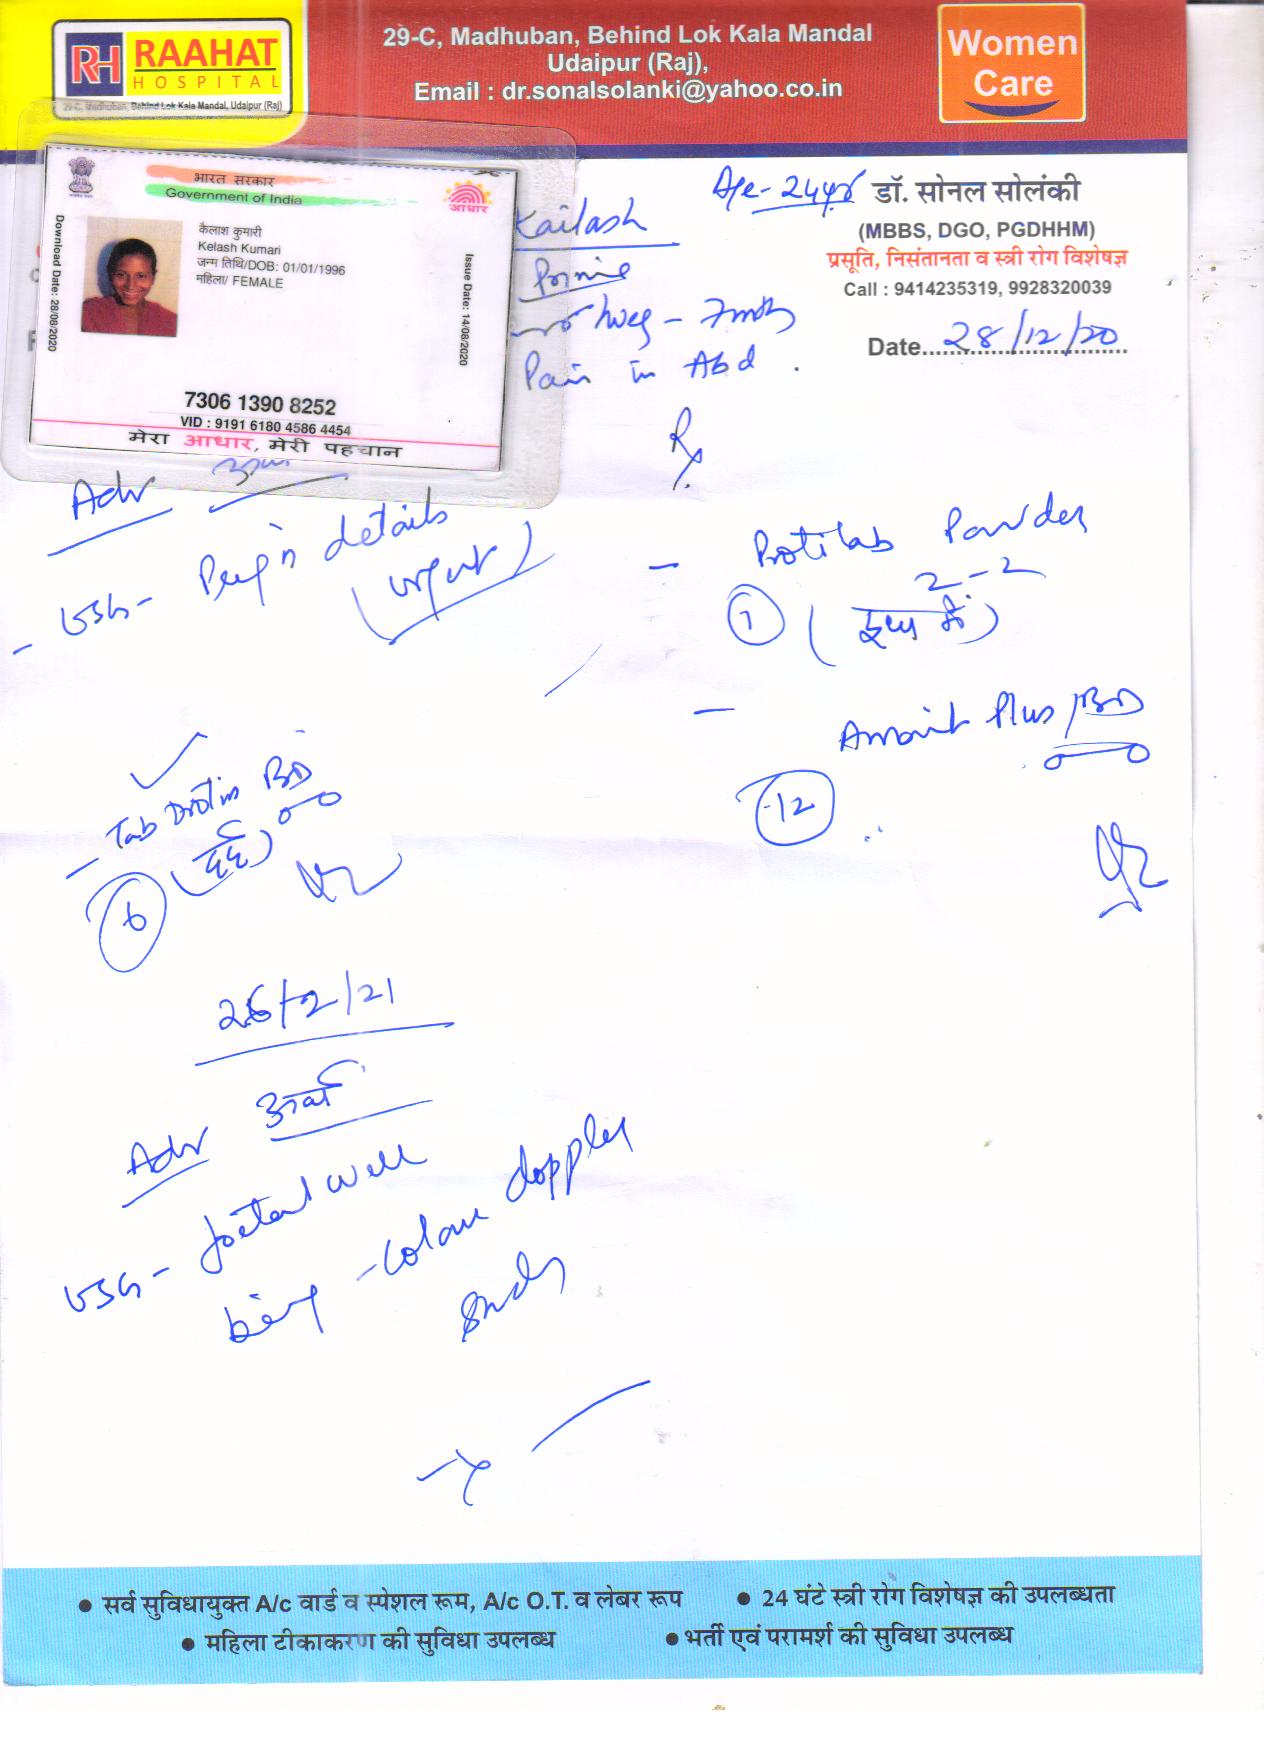 RH RAAHAT
HOSPITAL
29-C, Madhuban, Behind Lok Kala Mandal, Udaipur (Raj)
29-C, Madhuban, Behind Lok Kala Mandal
Udaipur (Raj),
Email : dr.sonalsolanki@yahoo.co.in
Women
Care
भारत सरकार
Government of India
आधार
Download Date: 28/08/2020
कैलाश कुमारी
Kelash Kumari
जन्म तिथि/DOB: 01/01/1996
महिला/ FEMALE
Issue Date: 14/08/2020
7306 1390 8252
VID : 9191 6180 4586 4454
मेरा आधार, मेरी पहचान
Age - 24yr
डॉ. सोनल सोलंकी
(MBBS, DGO, PGDHHM)
प्रसूति, निसंतानता व स्त्री रोग विशेषज्ञ
Call : 9414235319, 9928320039
Date 28/12/20
Kailash
Primie
Pain in Abd.
Rx
Adv
USG - Preg'n details
(urgent)
- Protilab Powder
2-2
(दूध में)
Plus BD
12
- Tab Drotin BD
(दर्द)
6
Adv
USG - foetal well
being - colour doppler
study
• सर्व सुविधायुक्त A/c वार्ड व स्पेशल रूम, A/c O.T. व लेबर रूप
• 24 घंटे स्त्री रोग विशेषज्ञ की उपलब्धता
• महिला टीकाकरण की सुविधा उपलब्ध
• भर्ती एवं परामर्श की सुविधा उपलब्ध